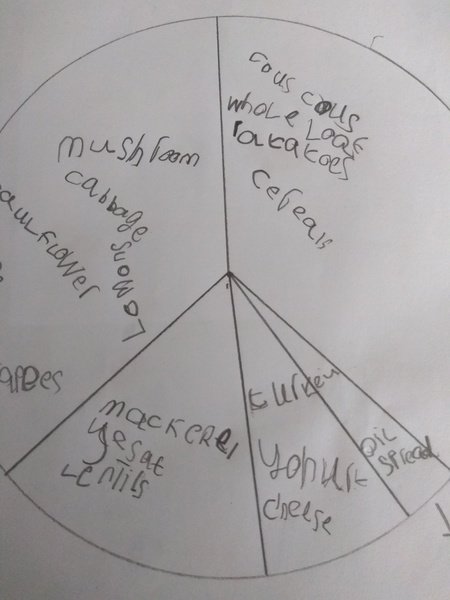 cous cous
whole Loaf
Potatoes
cereals
mushroom
cabbage
Lemons
aulflower
apes
mackerel
Lentils
turkey
Yohurt
cheese
oil
spread